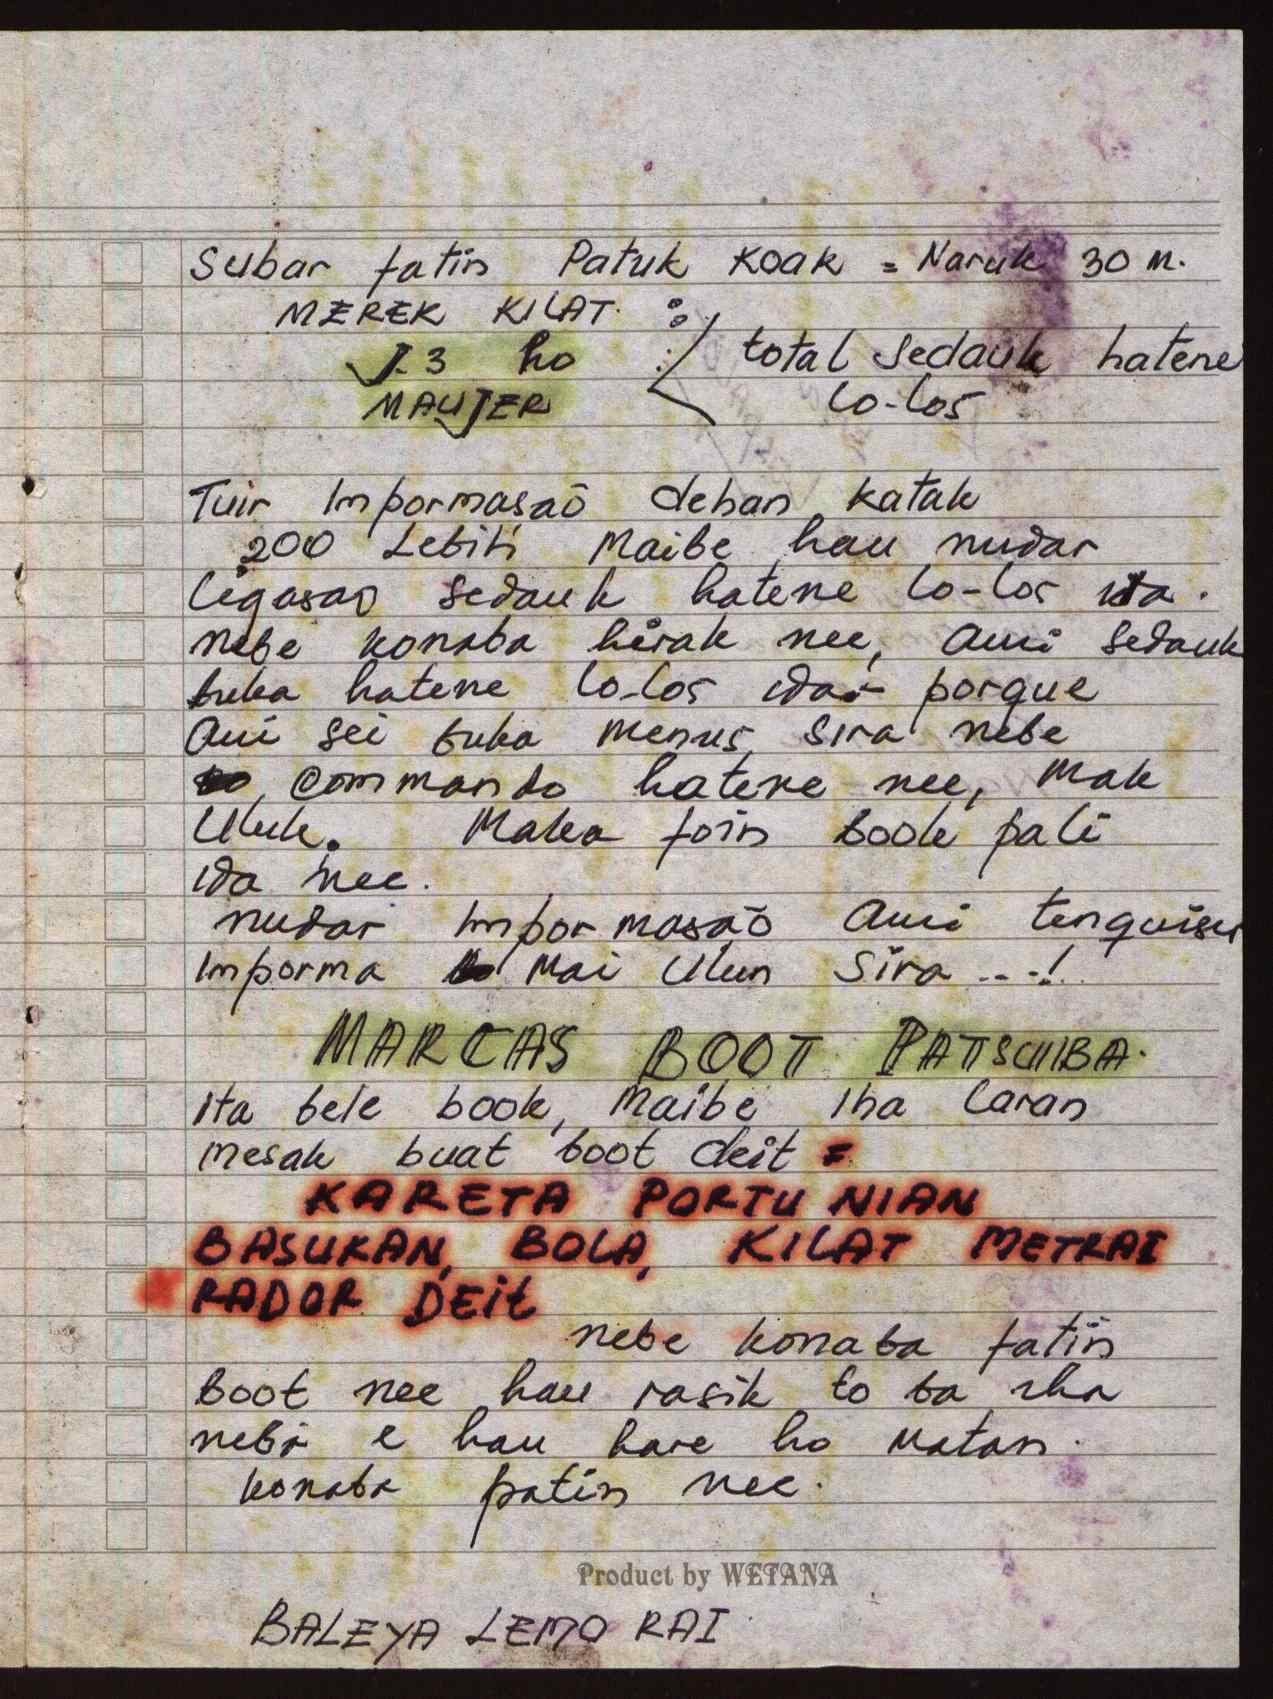 Subar fatin Patuk Koak = Naruk 30 m.
MEREK KILAT :
J.3 ho total sedauk hatene
MAUJER lo-los
Tuir Impormasaõ dehan katak
200 Lebih Maibe hau nudar
ligasao sedauk hatene lo-los ida.
nebe konaba hirak nee, ami sedauk
buka hatene lo-los ida porque
Ami sei buka menus sira nebe
commando hatene nee, Mak
Uluk. Maka foin book pali
ida nee.
nudar Impormasaõ Ami tenquisir
Imporma Mai Ulun Sira ---!
MARCAS BOOT PATSUIBA.
Ita bele book, Maibe iha laran
mesak buat boot deit =
KARETA PORTU NIAN
BASUKAN, BOLA, KILAT METRAI
RADOR DEit
nebe konaba fatin
Boot nee hau rasik to ba iha
neba e hau hare ho matan.
konaba patin nee.
Product by WETANA
BALEYA LEMO RAI